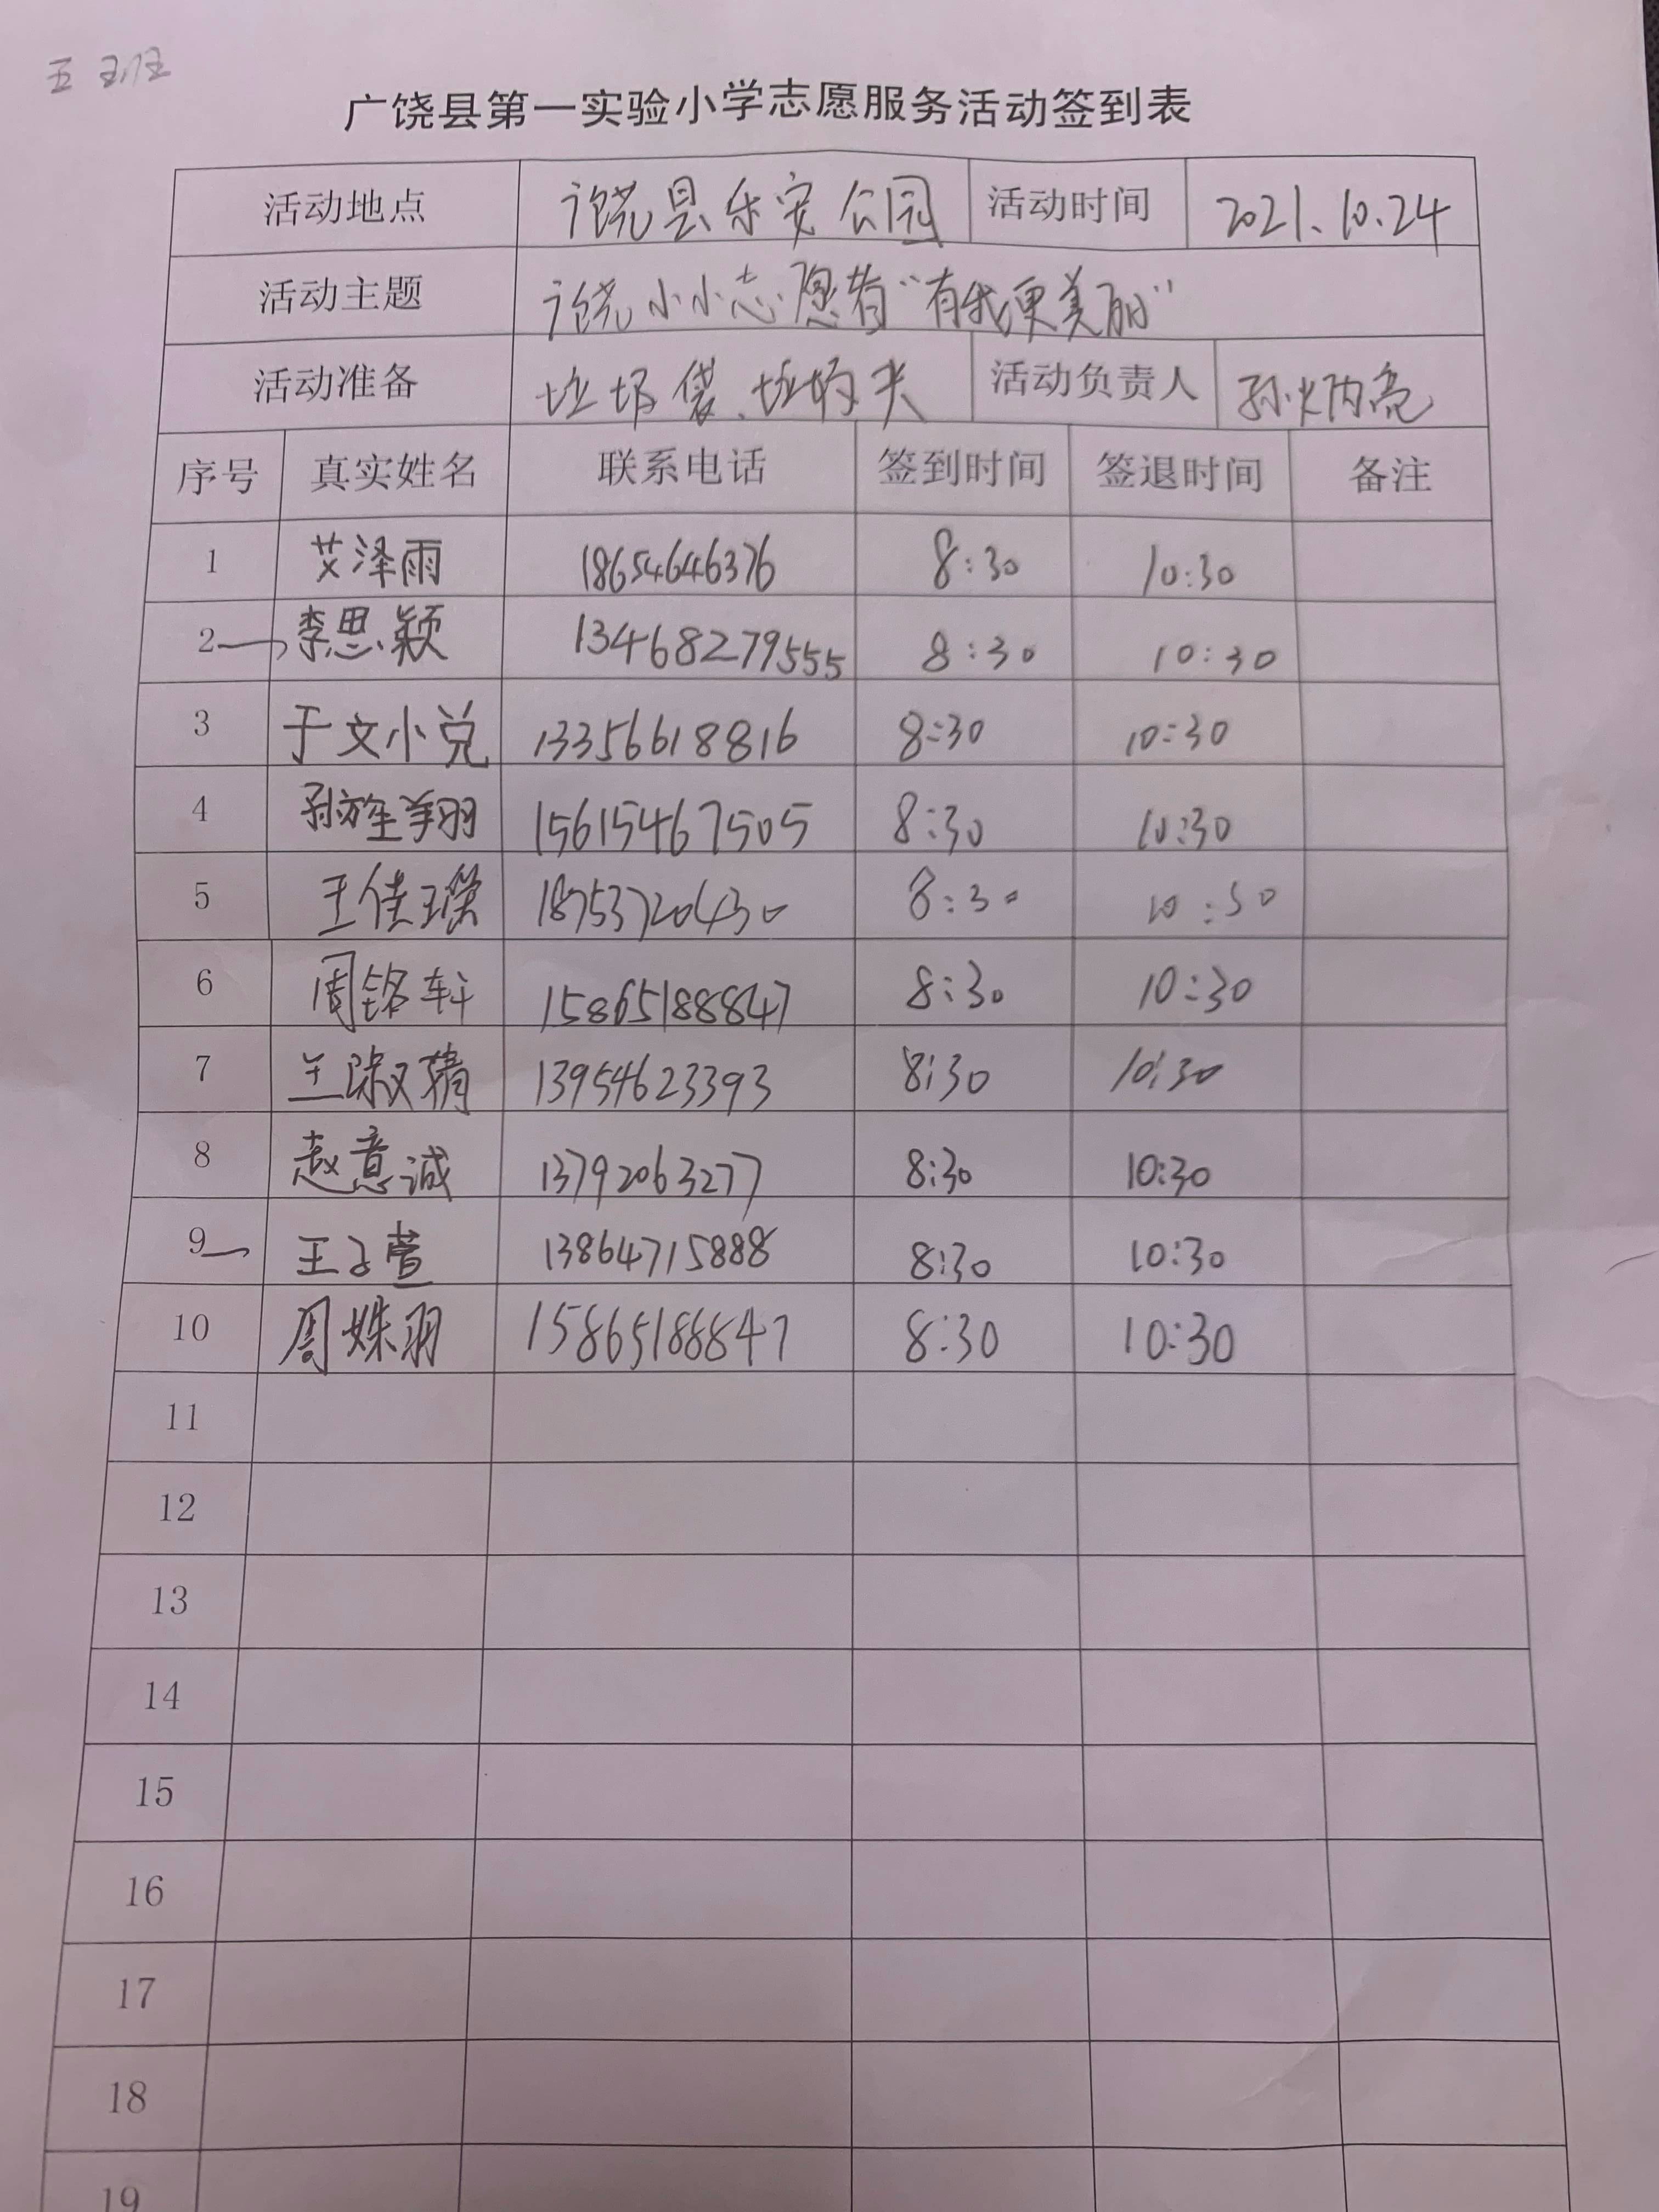 广饶县第一实验小学志愿服务活动签到表
活动地点 广饶县乐安公园 活动时间 2021.10.24
活动主题 广饶小小志愿者“有我更美丽”
活动准备 垃圾袋、垃圾夹 活动负责人 孙炳亮
序号 真实姓名 联系电话 签到时间 签退时间 备注
1 艾泽雨 18654646376 8:30 10:30
2 李思颖 13468279555 8:30 10:30
3 于文小兑 13356618816 8:30 10:30
4 15615467505 8:30 10:30
5 王佳璞 18753720430 8:30 10:30
6 周铭轩 15865188847 8:30 10:30
7 13954623393 8:30 10:30
8 赵意诚 13792063277 8:30 10:30
9 王子萱 13864715888 8:30 10:30
10 周姝羽 15865188847 8:30 10:30
11
12
13
14
15
16
17
18
19